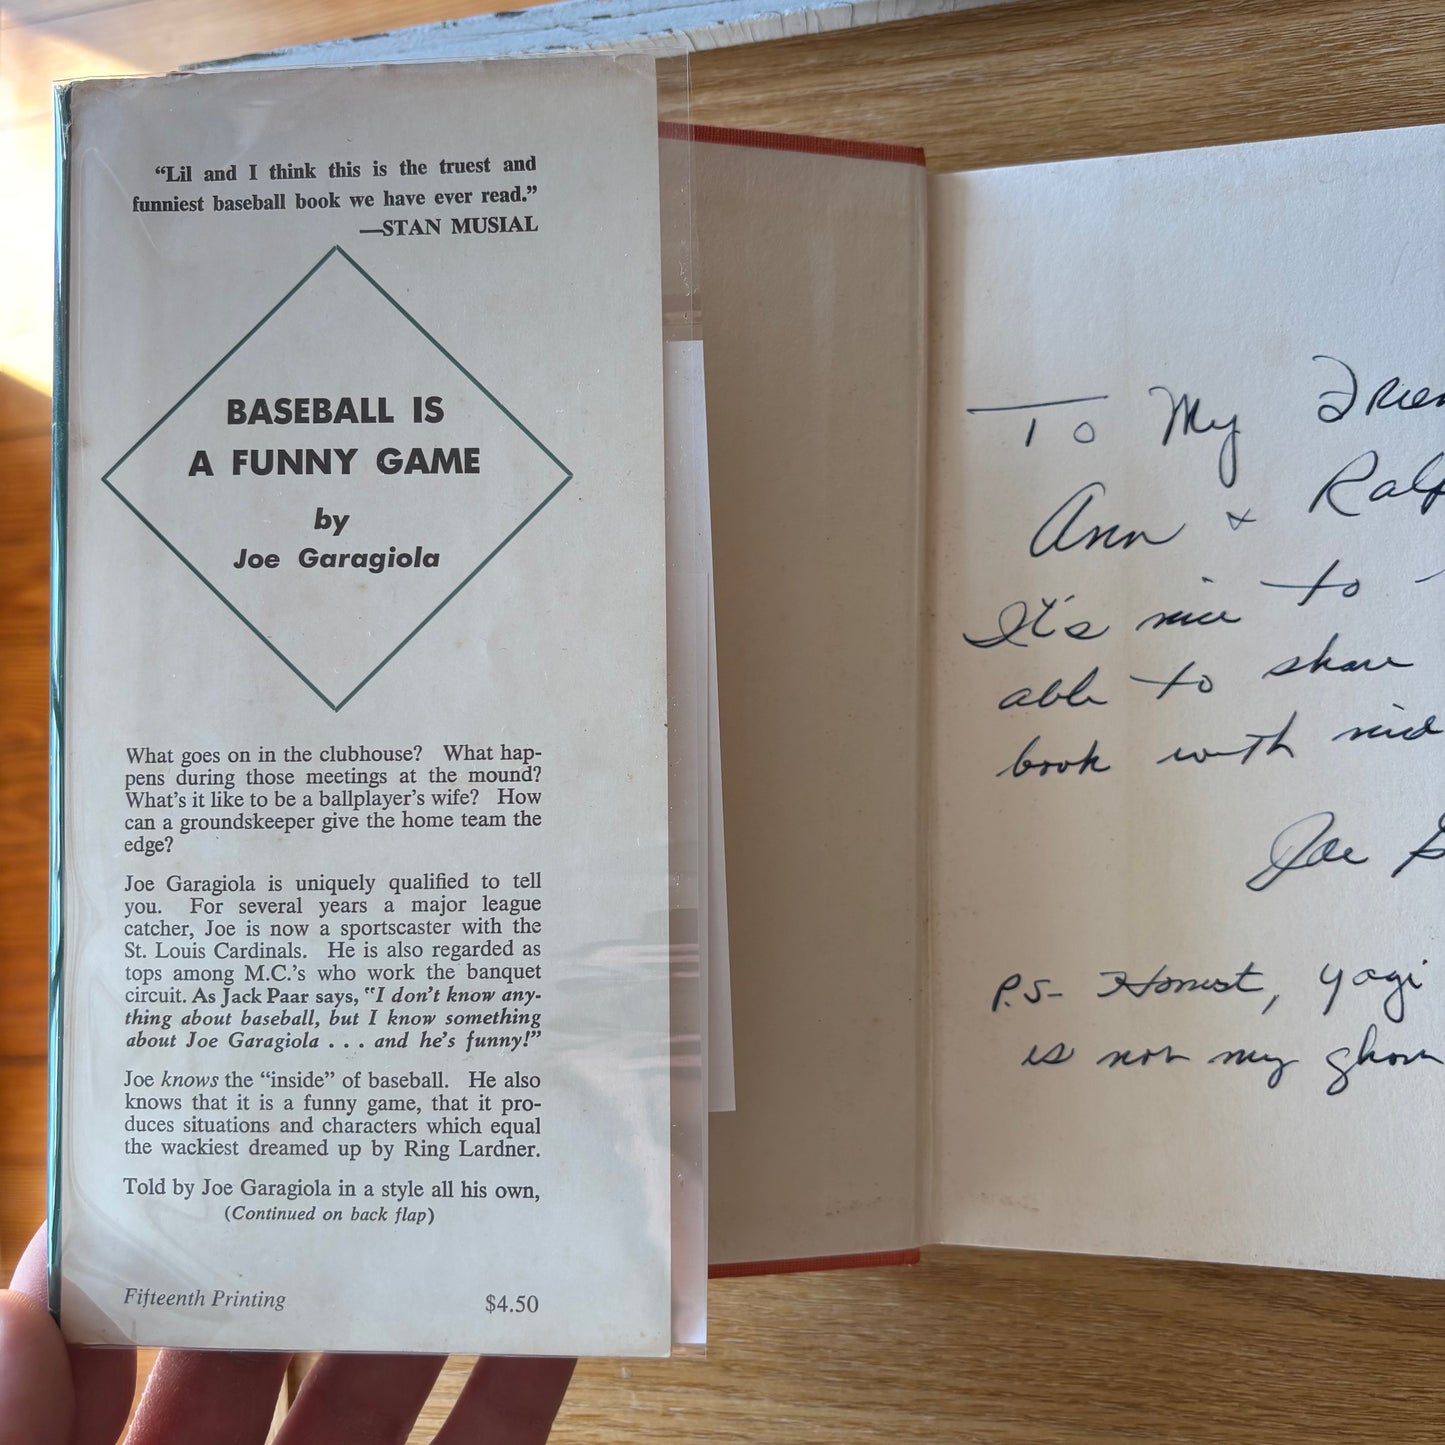 “Lil and I think this is the truest and
funniest baseball book we have ever read.”
—STAN MUSIAL
BASEBALL IS
A FUNNY GAME
by
Joe Garagiola
What goes on in the clubhouse? What hap-
pens during those meetings at the mound?
What’s it like to be a ballplayer’s wife? How
can a groundskeeper give the home team the
edge?
Joe Garagiola is uniquely qualified to tell
you. For several years a major league
catcher, Joe is now a sportscaster with the
St. Louis Cardinals. He is also regarded as
tops among M.C.’s who work the banquet
circuit. As Jack Paar says, “I don’t know any-
thing about baseball, but I know something
about Joe Garagiola . . . and he’s funny!”
Joe knows the “inside” of baseball. He also
knows that it is a funny game, that it pro-
duces situations and characters which equal
the wackiest dreamed up by Ring Lardner.
Told by Joe Garagiola in a style all his own,
(Continued on back flap)
Fifteenth Printing $4.50
To My
Ann +
It's nice to
able to share
book with
Joe
P.S- Honest, Yogi
is not my